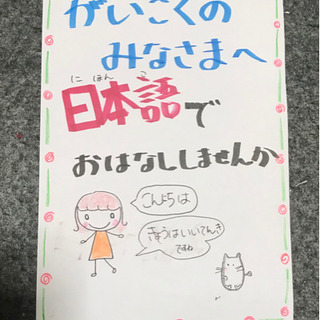 がいこくの
みなさまへ
に ほん ご
日本語で
おはなししませんか
こんにちは
きょうはいいてんき
ですね